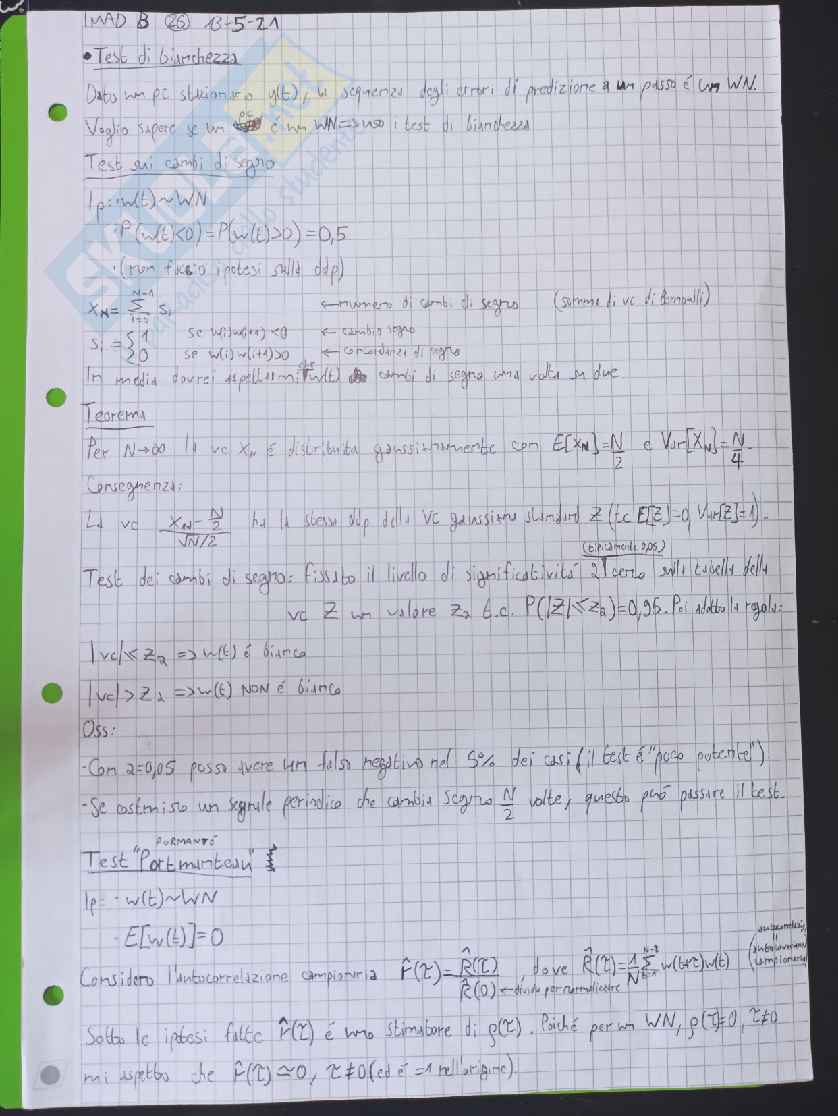 MAD B 26 13-5-21
• Test di bianchezza
Dato un pc stazionario y(t), la sequenza degli errori di predizione a un passo é un WN.
Voglio sapere se un pc é un WN => uso i test di bianchezza
Test sui cambi di segno
Ip= ·w(t)~WN
·P(w(t)<0)=P(w(t)>0)=0,5
·(non faccio ipotesi sulla ddp)
X_N = Σ_{i=1}^{N-1} s_i ← numero di cambi di segno (somma di vc di Bernoulli)
s_i = { 1 se w(i)w(i+1)<0 ← cambio segno
0 se w(i)w(i+1)>0 ← concordanza di segno
In media dovrei aspettarmi che w(t) cambi di segno una volta su due
Teorema
Per N→∞ la vc X_N é distribuita gaussianamente con E[X_N]=N/2 e Var[X_N]=N/4.
Conseguenza:
La vc (X_N - N/2)/(√N/2) ha la stessa ddp della vc gaussiana standard Z (tc E[Z]=0, Var[Z]=1).
(tipicamente 0,05)
Test dei cambi di segno: fissato il livello di significativitá α cerco sulla tabella della
vc Z un valore z_α t.c. P(|Z|≤z_α)=0,95. Poi adotto la regola:
|vc|≤z_α => w(t) é bianco
|vc|>z_α => w(t) NON é bianco
Oss:
·Con α=0,05 posso avere un falso negativo nel 5% dei casi (il test é "poco potente")
·Se costruisco un segnale periodico che cambia segno N/2 volte, questo puó passare il test.
PORMANTÓ
Test "Portmanteau"
Ip= ·w(t)~WN
·E[w(t)]=0
Considero l'autocorrelazione campionaria r̂(τ)=R̂(τ)/R̂(0) ← divido per normalizzare, dove R̂(τ)=1/N Σ w(t+τ)w(t)
Sotto le ipotesi fatte r̂(τ) é uno stimatore di ρ(τ). Poiché per un WN, ρ(τ)=0, τ≠0
mi aspetto che r̂(τ)≃0, τ≠0 (ed é =1 nell'origine).